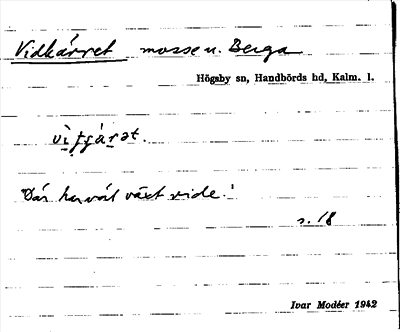 Vidkärret mosse u. Berga
Högsby sn, Handbörds hd, Kalm. l.
"Där har väl växt vide."
s. 18
Ivar Modéer 1942